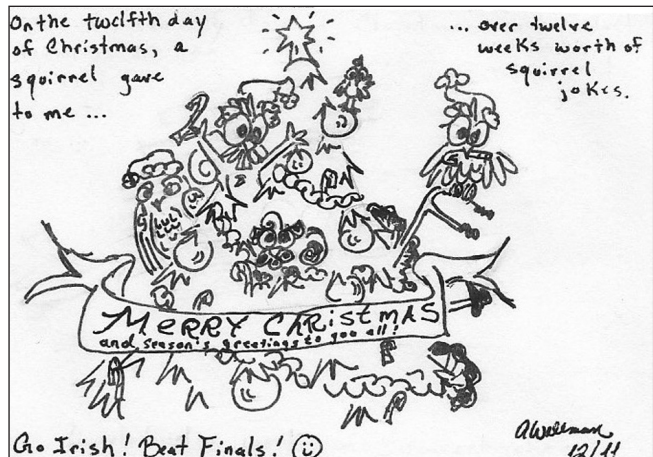 On the twelfth day
of Christmas, a
squirrel gave
to me ...
... over twelve
weeks worth of
squirrel
jokes.
MERRY CHRiStMAS
and season's greetings to you all!
Go Irish! Beat Finals!
12/11